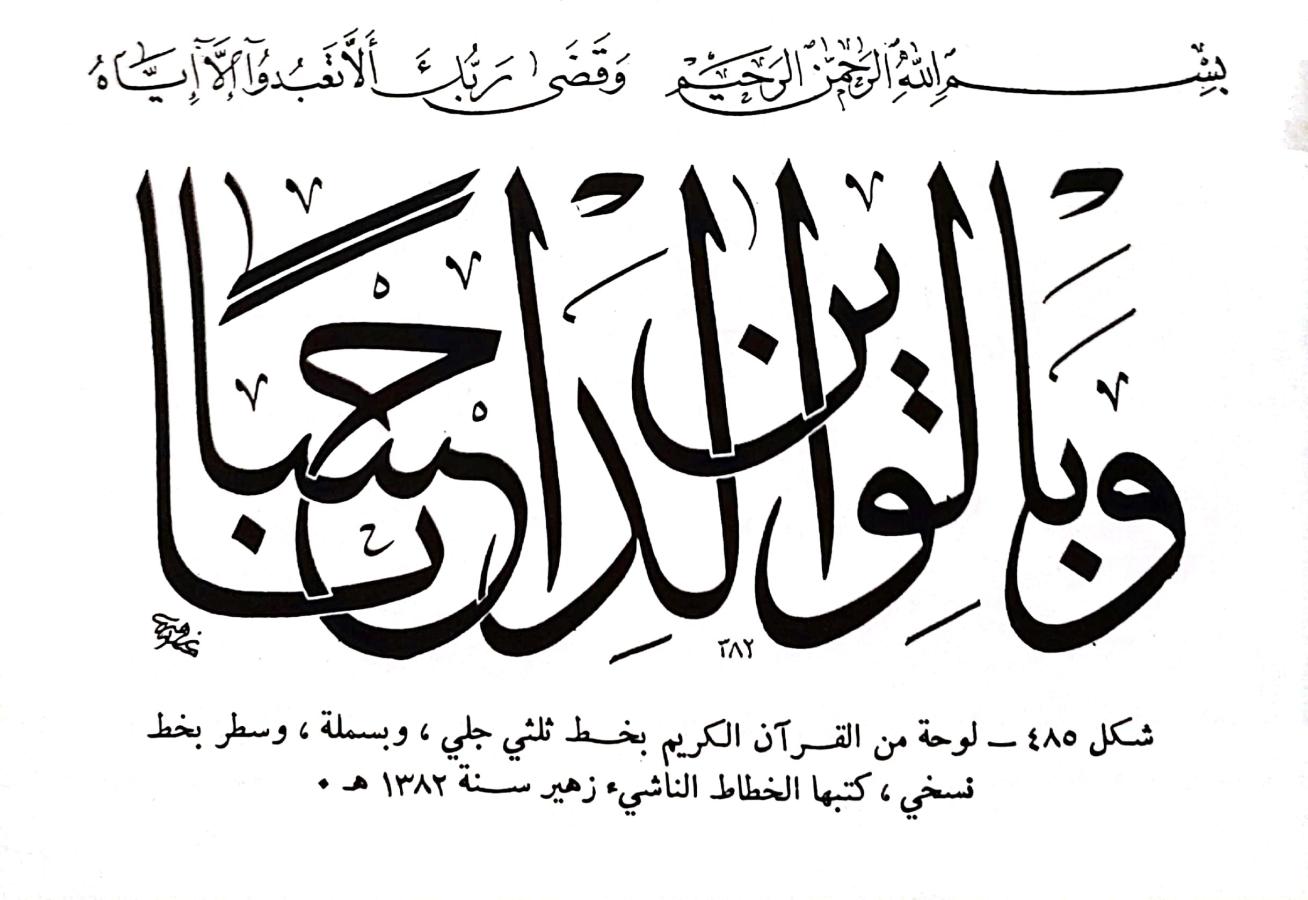 بِسْمِ اللّٰهِ الرَّحْمٰنِ الرَّحِيْمِ وَقَضَى رَبُّكَ أَلَّا تَعْبُدُوٓا إِلَّآ إِيَّاهُ
وَبِالْوَالِدَيْنِ إِحْسَانًا
٣٨٢
شكل ٤٨٥ ــ لوحة من القرآن الكريم بخط ثلثي جلي ، وبسملة ، وسطر بخط
نسخي ، كتبها الخطاط الناشيء زهير سنة ١٣٨٢ هـ ٠